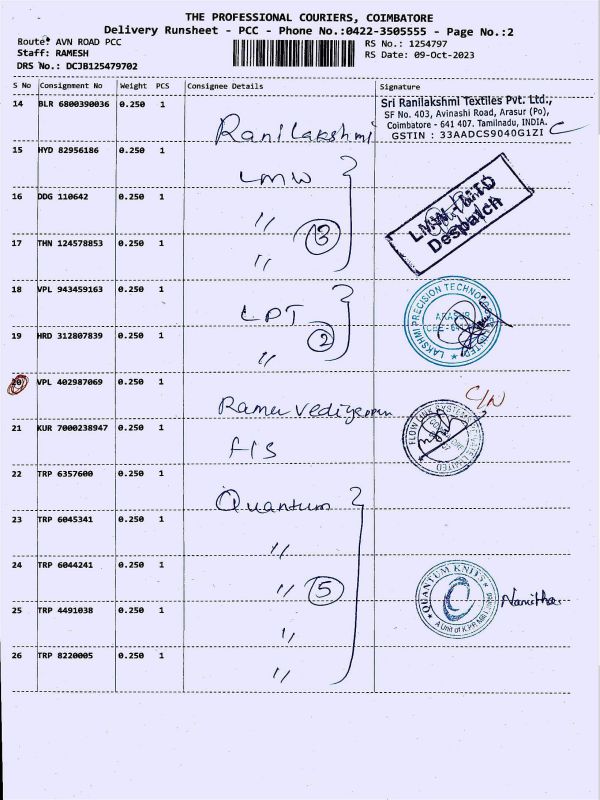 THE PROFESSIONAL COURIERS, COIMBATORE
Delivery Runsheet - PCC - Phone No.:0422-3505555 - Page No.:2
Route: AVN ROAD PCC
Staff: RAMESH
DRS No.: DCJB125479702
RS No.: 1254797
RS Date: 09-Oct-2023
S No Consignment No Weight PCS Consignee Details Signature
14 BLR 6800390036 0.250 1 Ranilakshmi
Sri Ranilakshmi Textiles Pvt. Ltd.,
SF No. 403, Avinashi Road, Arasur (Po),
Coimbatore - 641 407. Tamilnadu, INDIA.
GSTIN : 33AADCS9040G1ZI
15 HYD 82956186 0.250 1 LMW
16 DDG 110642 0.250 1 "
3
17 THN 124578853 0.250 1 "
Despatch
18 VPL 943459163 0.250 1 LPT
2
19 HRD 312807839 0.250 1 "
LAKSHMI PRECISION TECHNOLOGIES LIMITED
ARASUR
20 VPL 402987069 0.250 1
C/N
21 KUR 7000238947 0.250 1 FIS
FLOW LINK SYSTEMS PRIVATE LIMITED
22 TRP 6357600 0.250 1 Quantum
23 TRP 6045341 0.250 1 "
24 TRP 6044241 0.250 1 "
5
25 TRP 4491038 0.250 1 "
26 TRP 8220005 0.250 1 "
QUANTUM KNITS